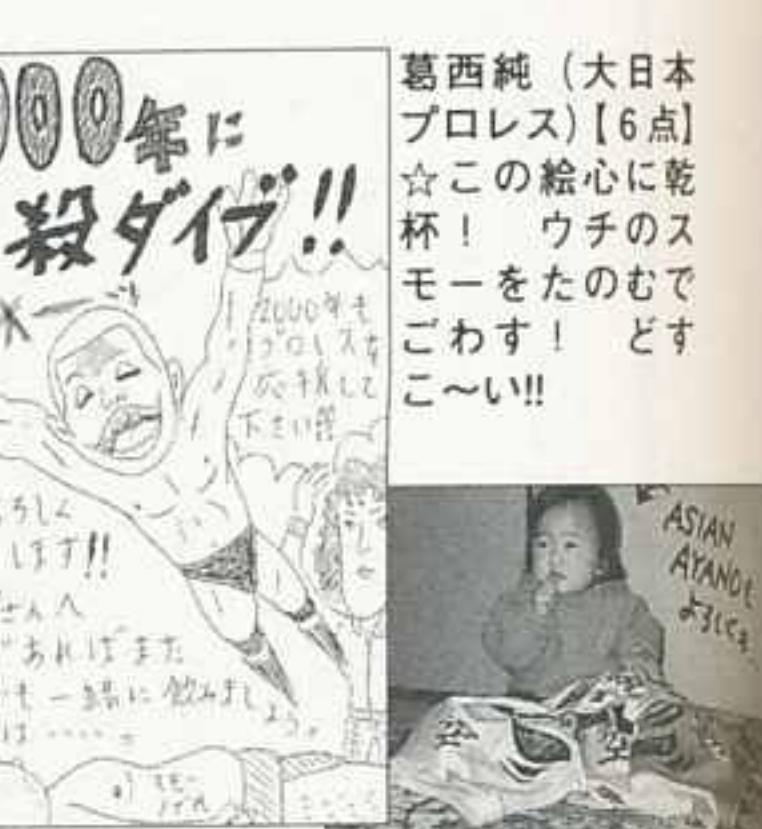 000年に
殺ダイブ!!
2000年も
プロレスを
応援して
下さい
ろしく
します!!
さんへ
があればまた
も一緒に飲みましょう。
は・・・・・
葛西純（大日本
プロレス）【6点】
☆この絵心に乾
杯！　ウチのス
モーをたのむで
ごわす！　どす
こ〜い!!
ASIAN
よろしくネ